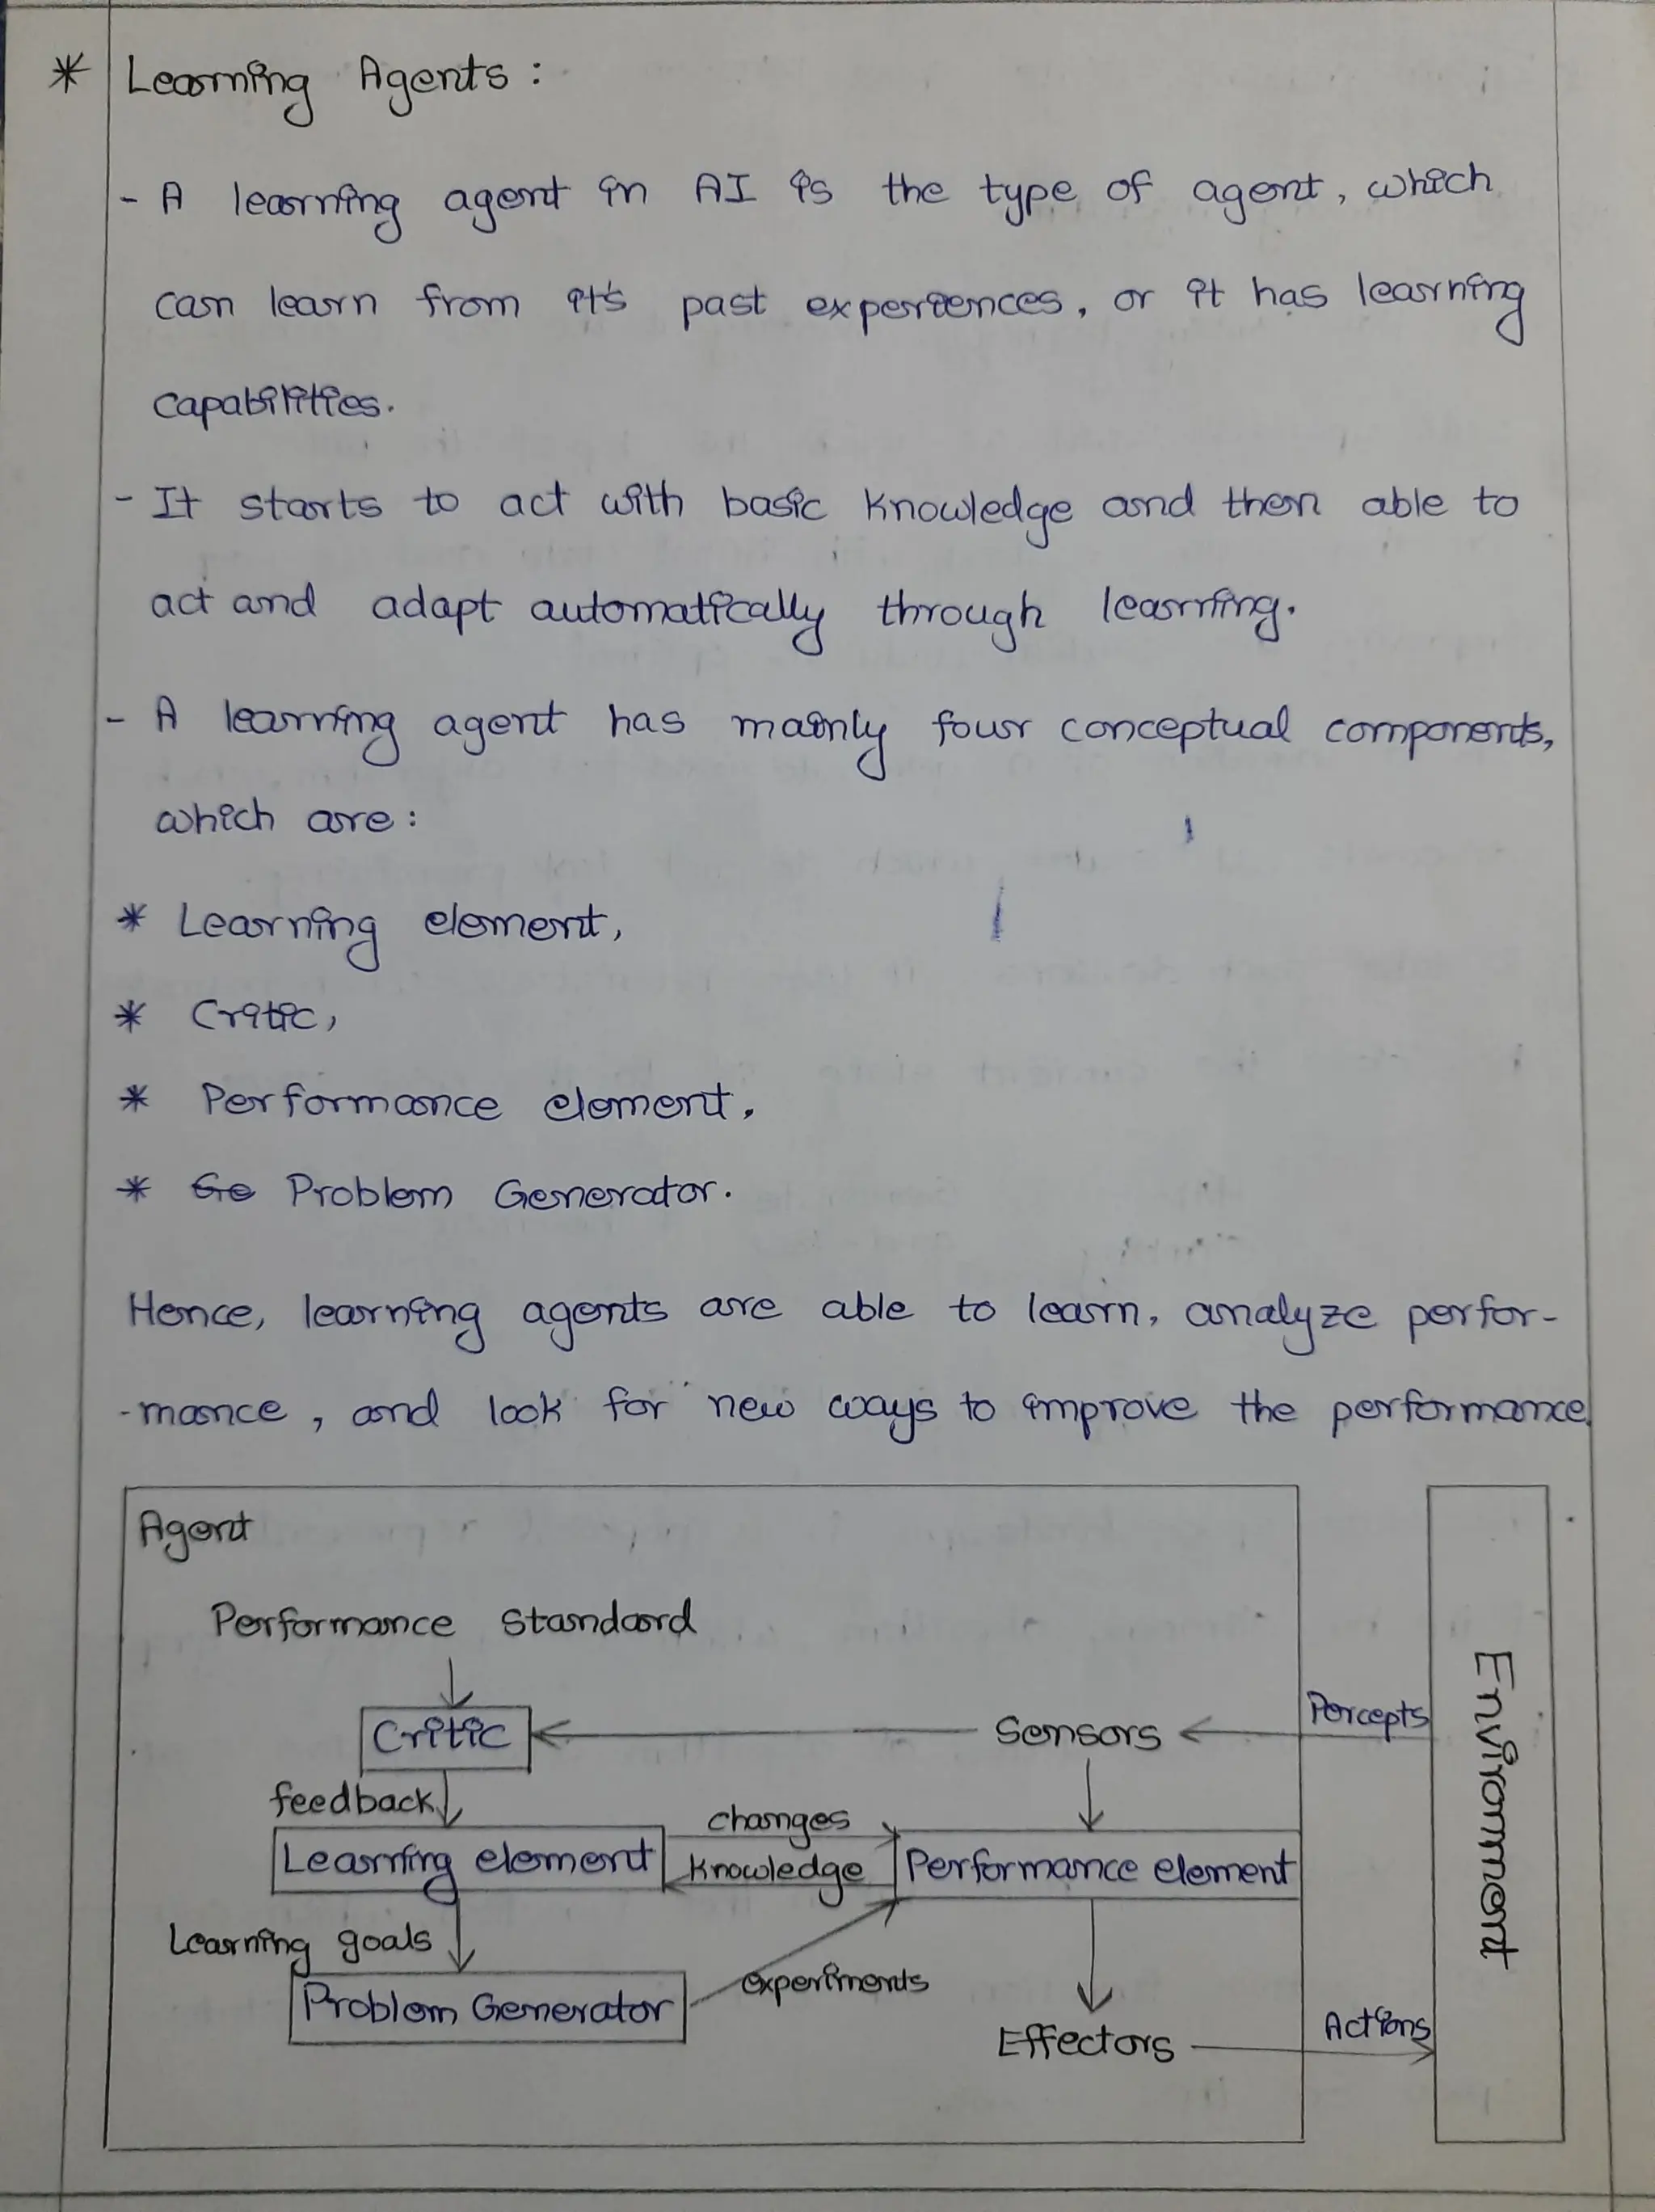 * Learning Agents :
- A learning agent in AI is the type of agent, which
can learn from it's past experiences, or it has learning
capabilities.
- It starts to act with basic knowledge and then able to
act and adapt automatically through learning.
- A learning agent has mainly four conceptual components,
which are :
* Learning element,
* Critic,
* Performance element,
* Ge Problem Generator.
Hence, learning agents are able to learn, analyze perfor-
-mance, and look for new ways to improve the performance.
Agent
Performance Standard
Critic
Sensors
Percepts
Environment
feedback
changes
Learning element
Knowledge
Performance element
Learning goals
experiments
Problem Generator
Effectors
Actions